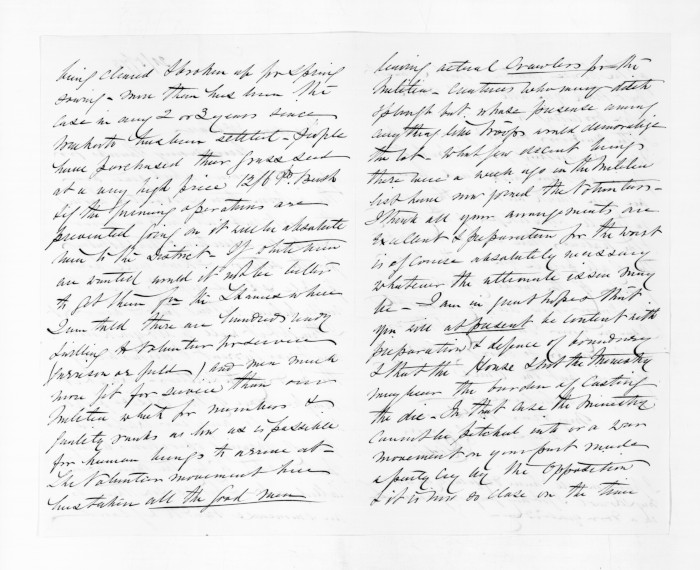 being cleared & broken up for Spring
sowing - more than has been the
case in any 2 or 3 years since
has been settled - People
have purchased their grass seed
at a very high price 12/6 Pr. Bush
If the Spring operations are
prevented going on it will be absolute
ruin to the District - If men
are wanted would it not be better
to get them fm the Thames where
I am told there are hundreds ready
& willing to Volunteer for service
(Garrison or field) and men much
more fit for service than our
Militia which for numbers &
quality ranks as low as is possible
for human beings to arrive at -
The Volunteer movement here
has taken all the good men
leaving actual Crawlers for the
Militia - Creatures who may ditch
& plough but whose presence among
anything like troops would demoralize
the lot - What few decent beings
there were a week ago in the Militia
list have now joined the Volunteers -
I think all your arrangements are
excellent & preparation for the worst
is of course absolutely necessary
whatever the ultimate issue may
be - I am in great hopes that
you will at present be content with
preparation & defence of boundary
& that the House & not the Ministry
may bear the burden of Casting
the die - In that case the Ministry
cannot be pitched into or a war
movement on your part made
a party cry by the Opposition
& it is now so close on the time